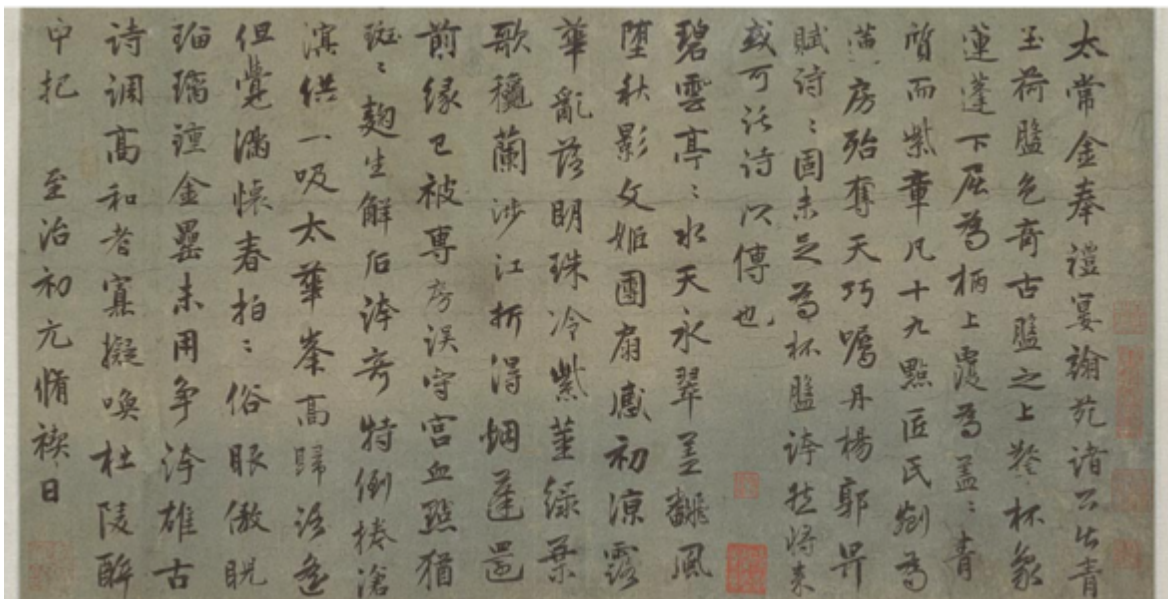 太常金奉禮宴翰苑諸公出青
玉荷盤色奇古盤之上鏧杯象
蓮蓬下屈為柄上覆為蓋〻青
質而紫章凡十九點匠氏刳為
房殆奪天巧囑丹楊郭畀
賦詩〻固未足為杯盤誇然將来
或可託詩以傳也
碧雲亭〻水天永翠蓋翻風
墮秋影文姬團扇感初涼露
華亂落明珠冷紫莖緑葉
歌穠蘭涉江折得烟蓬還
前緣已被專房誤守宮血點猶
斑〻麴生解后誇奇特倒捲滄
溟供一吸太華峯高歸路遙
但覺滿懷春拍〻俗眼傲睨
璃鍾金罍未用爭誇雄古
詩調高和者寡擬喚杜陵醉
中起 至治初元脩禊日